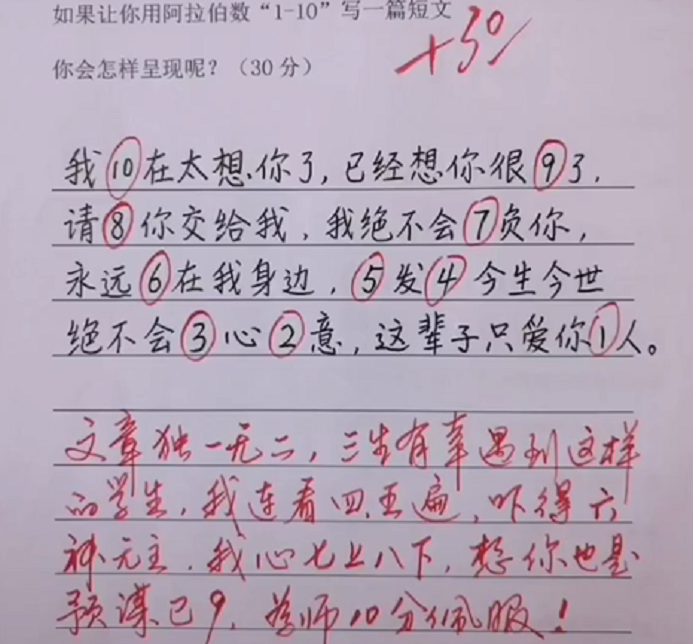 如果让你用阿拉伯数“1-10”写一篇短文
+30
你会怎样呈现呢？（30分）
我⑩在太想你了,已经想你很⑨了.
请⑧你交给我,我绝不会⑦负你,
永远⑥在我身边,⑤发④今生今世
绝不会③心②意,这辈子只爱你①人。
文章独一无二,三生有幸遇到这样
的学生,我连看四五遍,吓得六
神无主,我心七上八下,想你也是
预谋已9,为师10分佩服!